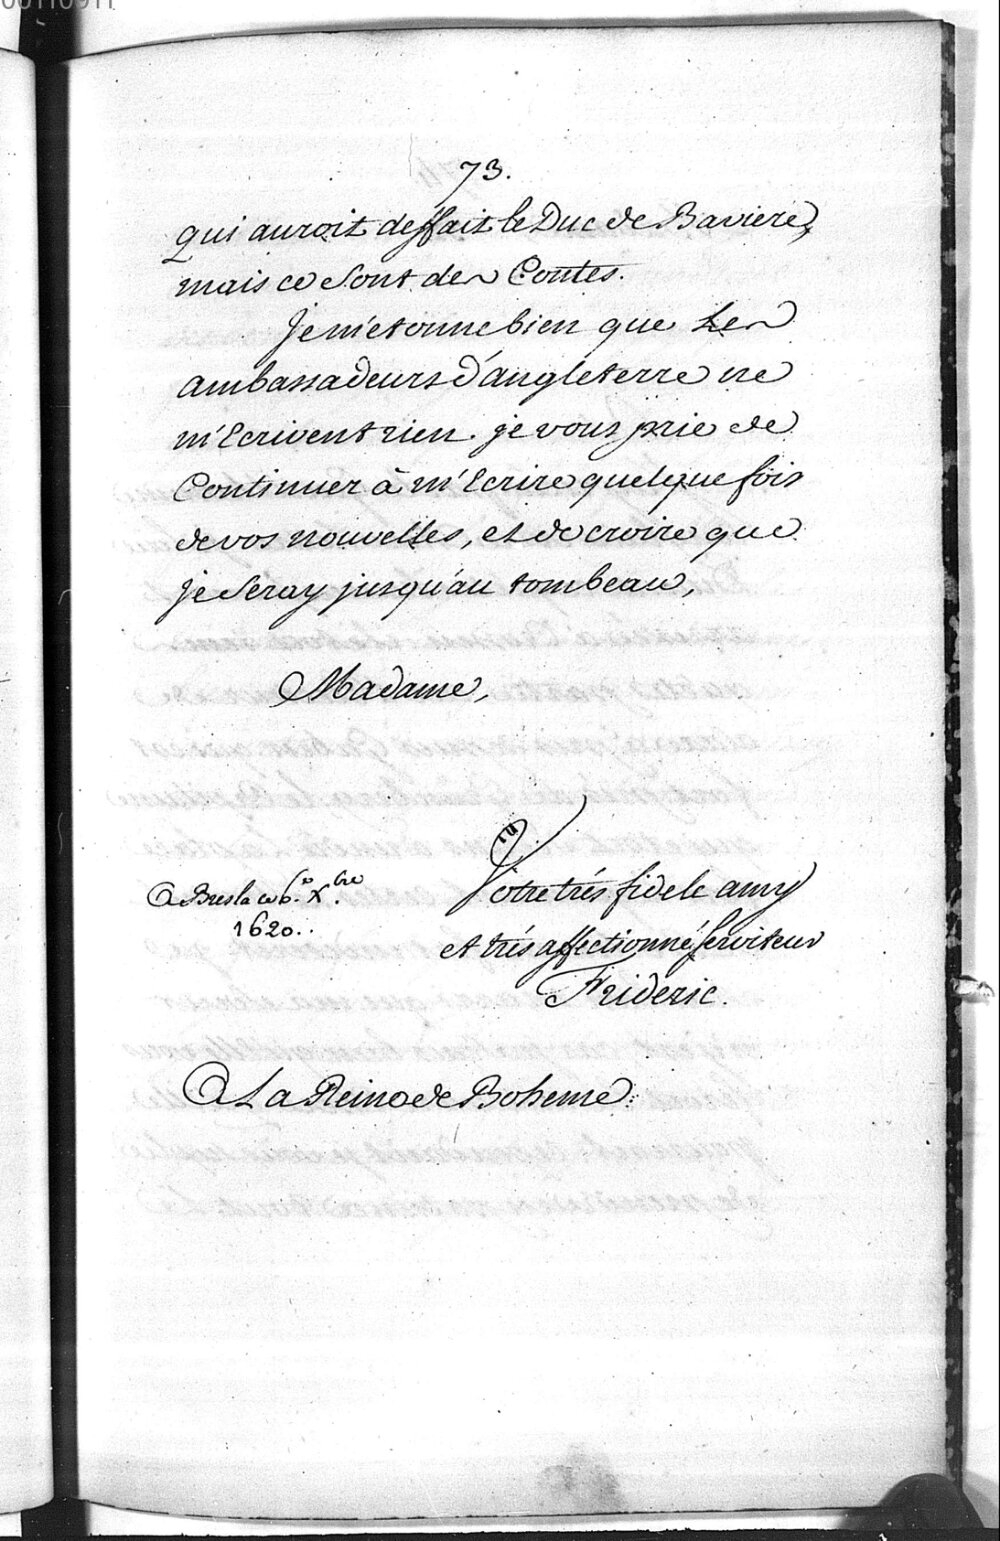 00110911
73.
qui auroit deffait le Duc de Baviere,
mais ce sont des Contes.
Je m'etonne bien que Les
ambassadeurs d'angleterre ne
m'Ecrivent rien. je vous prie de
Continuer à m'Ecrire quelque fois
de vos nouvelles, et de croire que
je seray jusqu'au tombeau,
Madame,
Votre trés fidele amy
et trés affectionné serviteur
Frideric.
A Breslaw 6.º X.bre
1620..
A La Reine de Boheme.